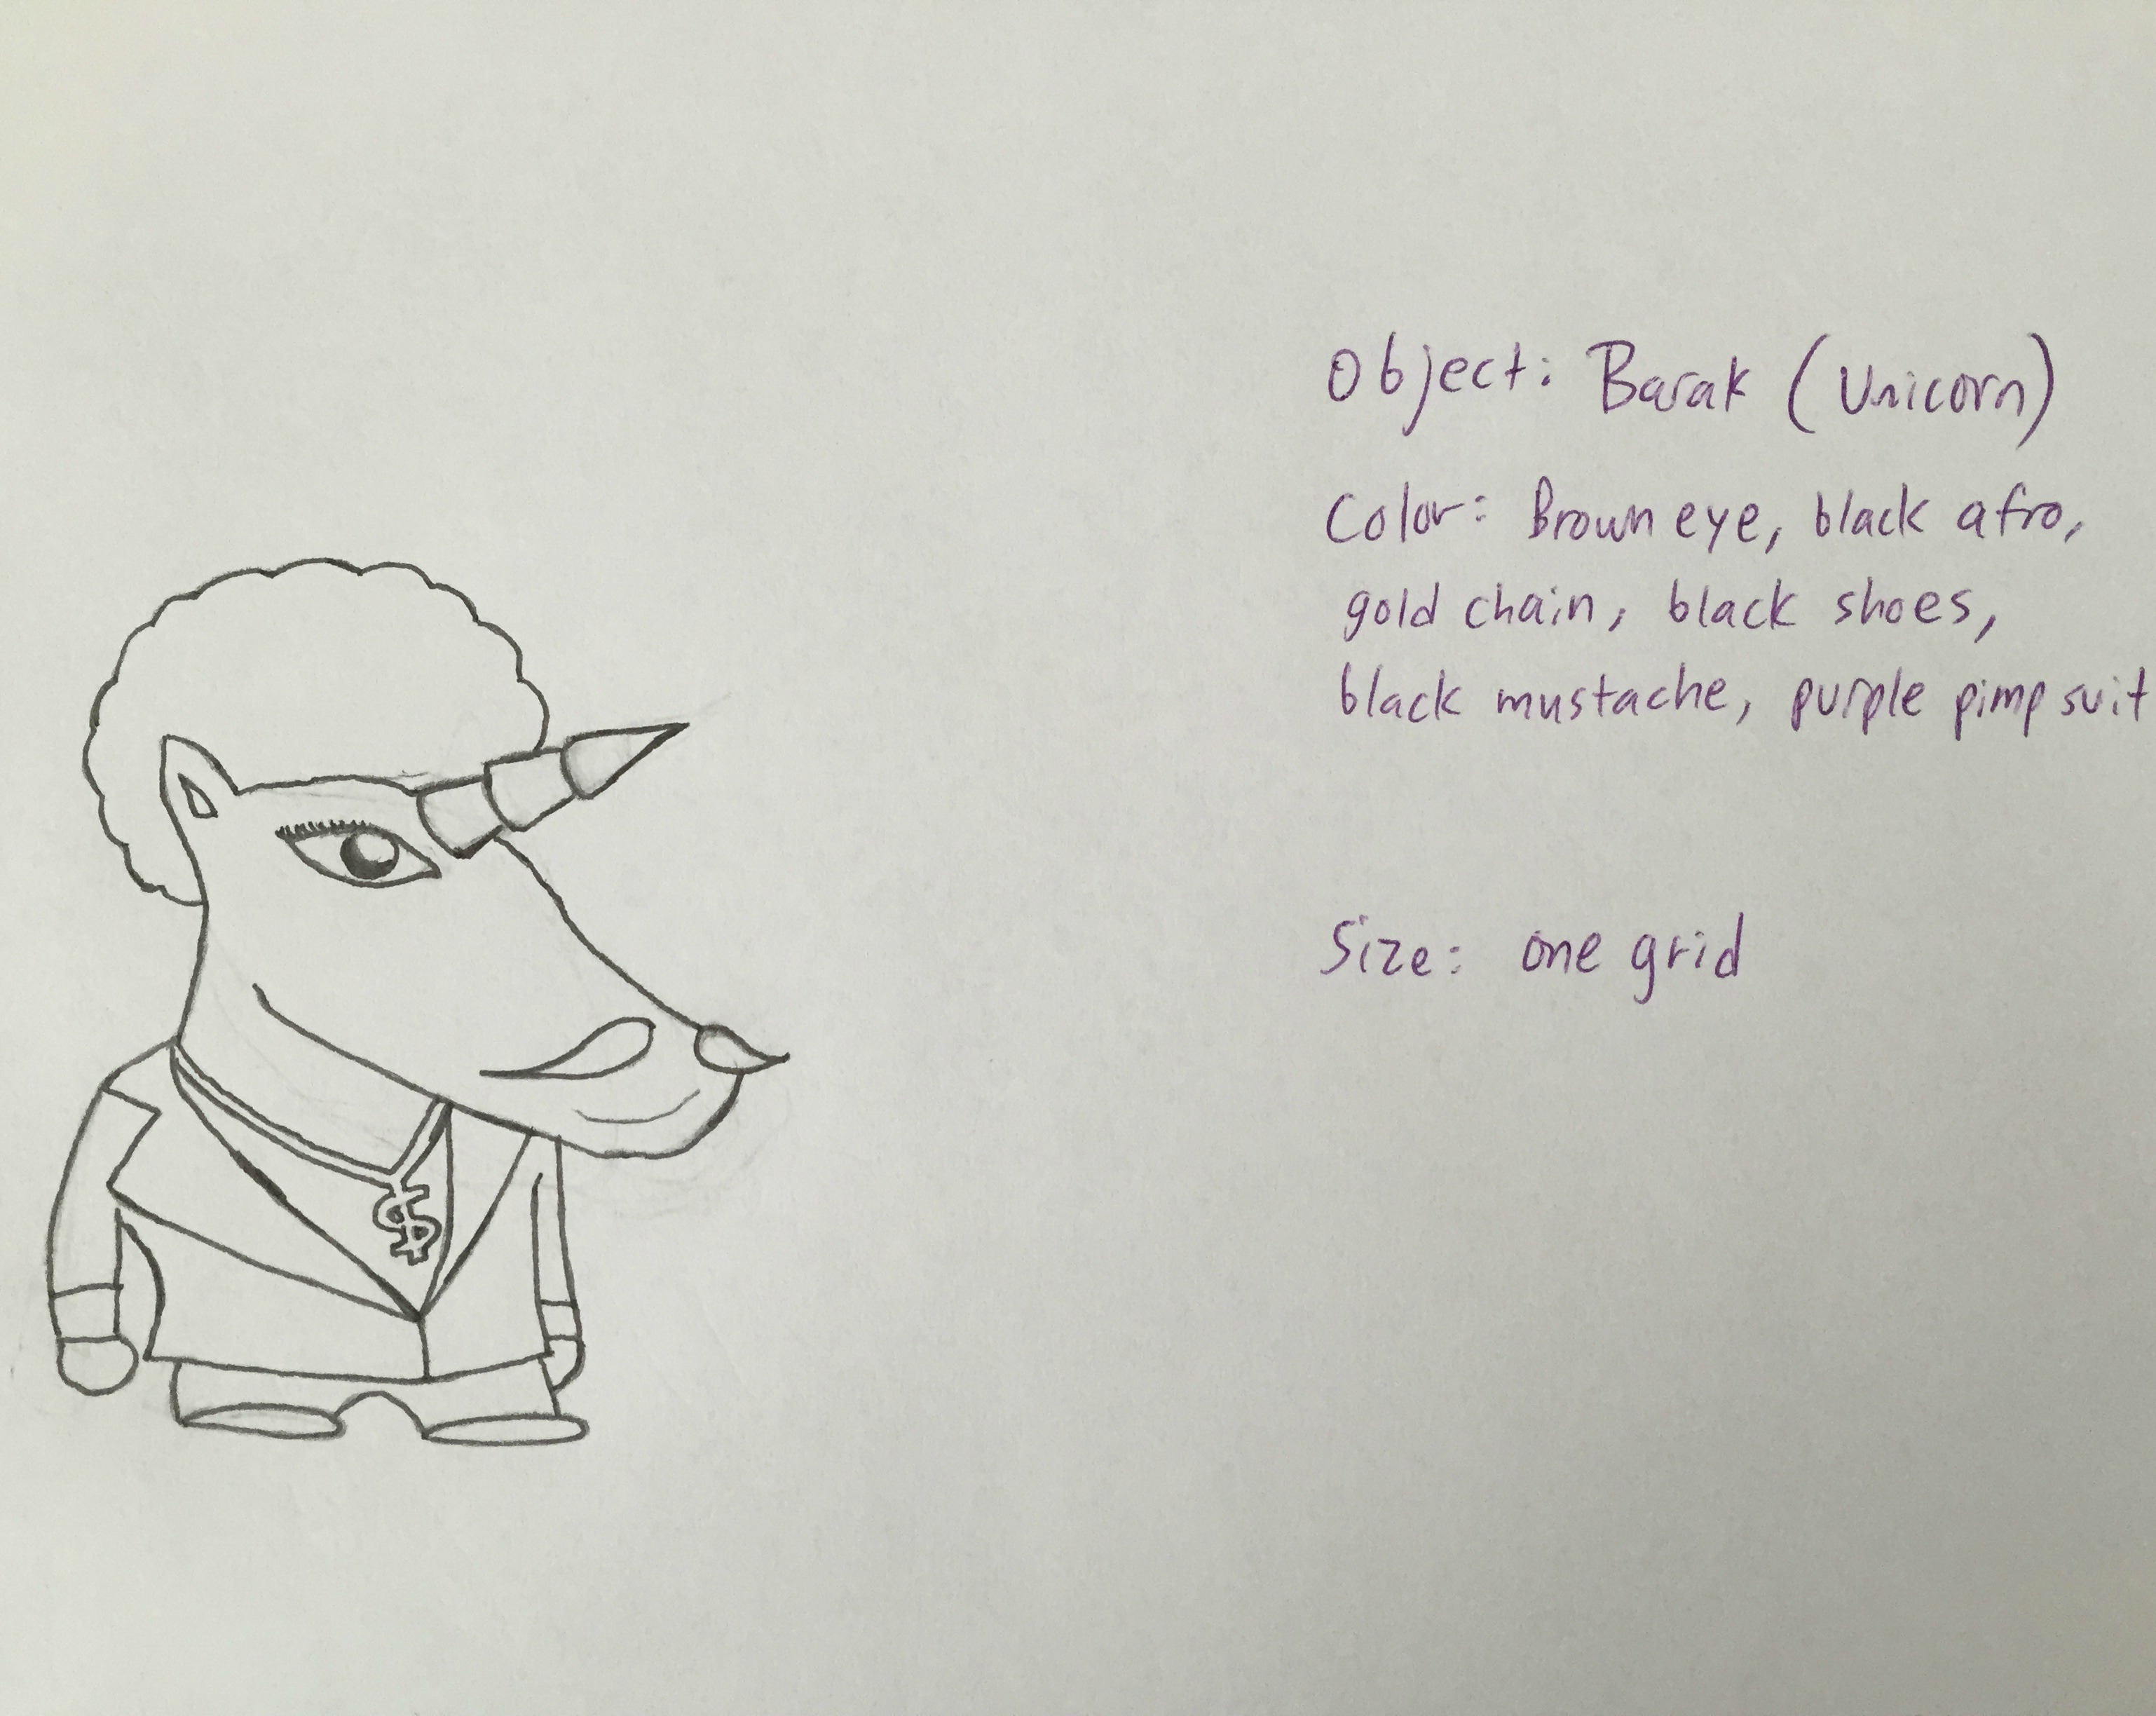 Object: Barak (Unicorn)
Color: Brown eye, black afro,
gold chain, black shoes,
black mustache, purple pimp suit
Size: one grid
$